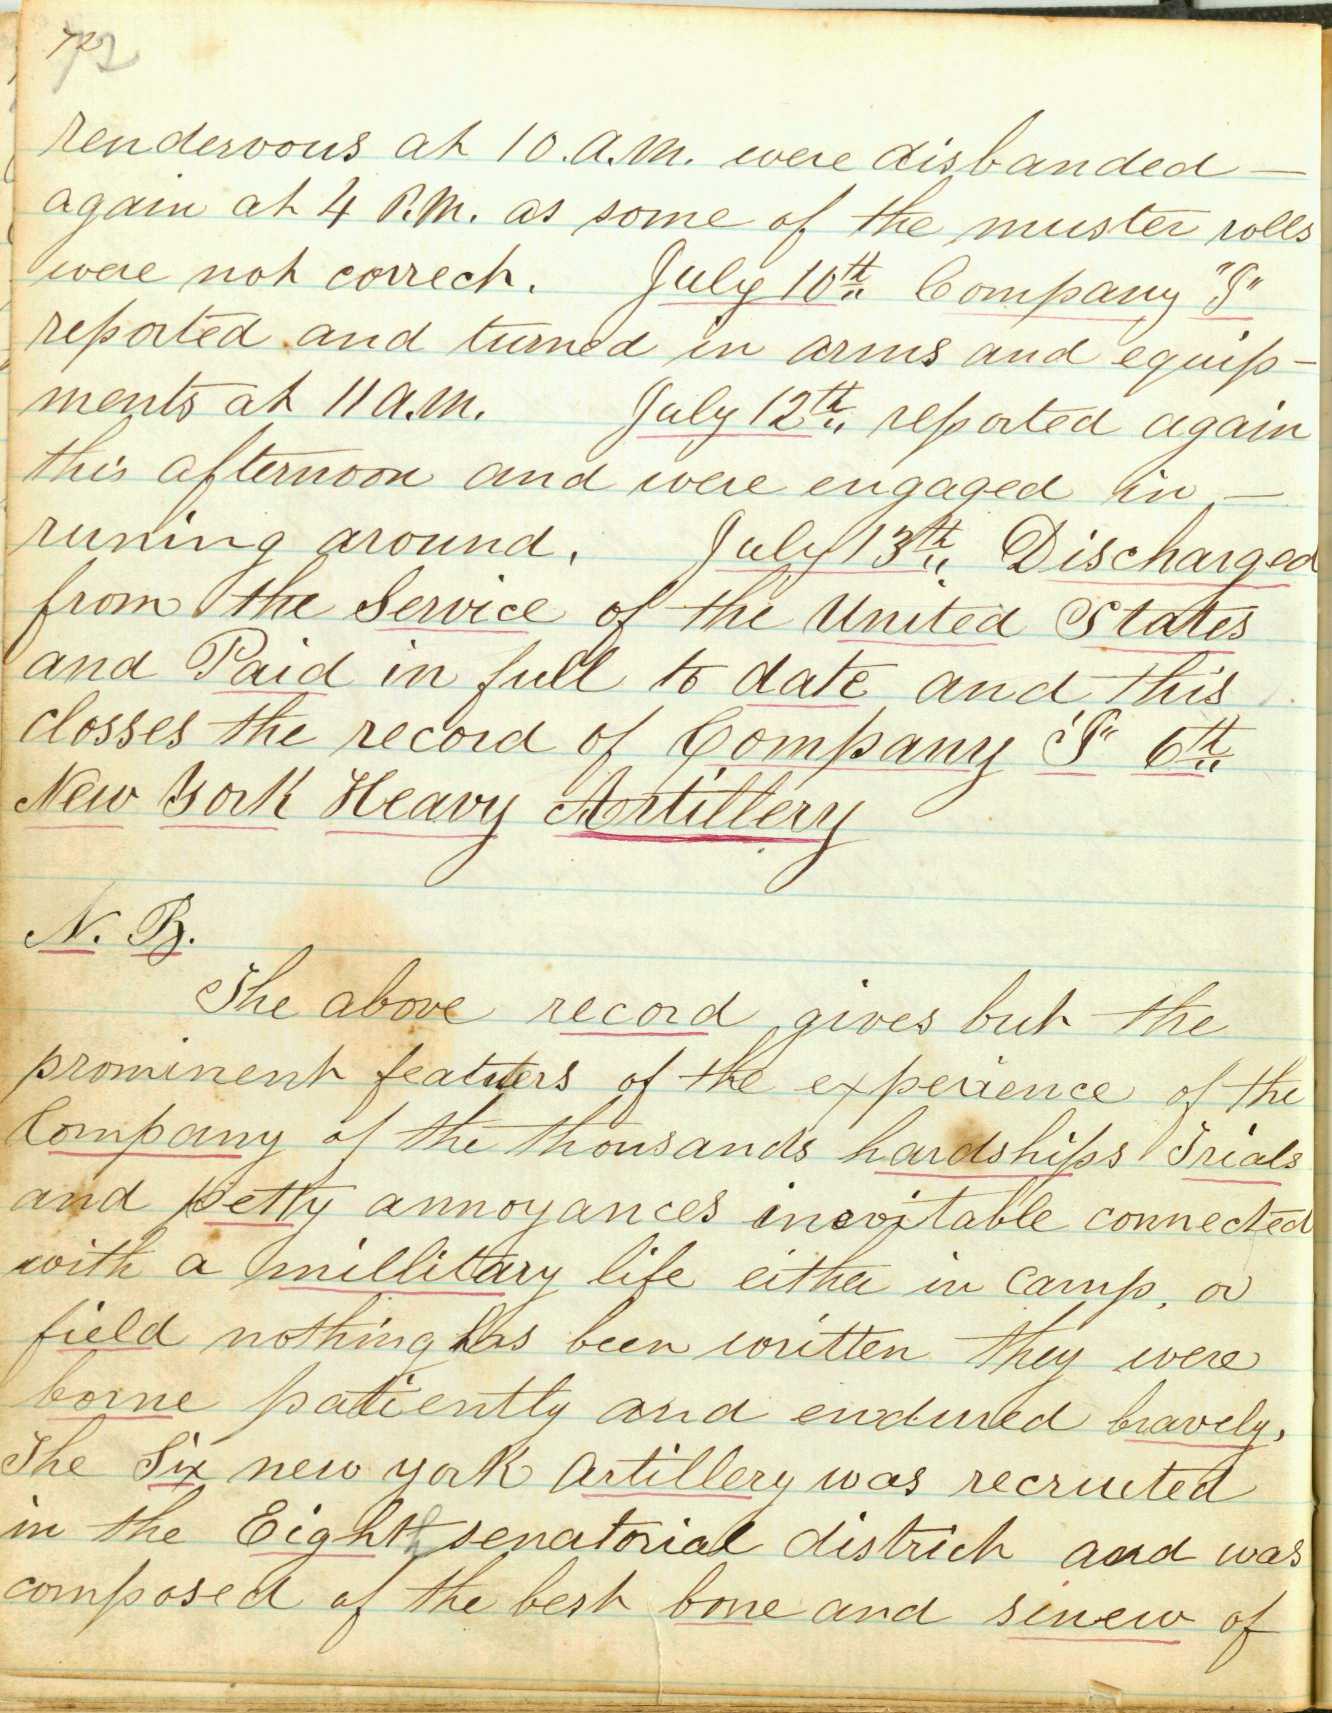 72
72
rendervous at 10.A.M. were disbanded —
again at 4 P.M. as some of the muster rolls
were not correct. July 10th Company "I"
reported and turned in arms and equip-
ments at 11 A.M. July 12th reported again
this afternoon and were engaged in —
runing around. July 13th Discharged
from the Service of the United States
and Paid in full to date and this
closses the record of Company "I" 6th
New York Heavy Artillery
N. B.
The above record gives but the
prominent featuters of the experience of the
Company of the thousands hardships Trials
and petty annoyances inevitable connected
with a millitary life either in camp, or
field nothing has been written they were
borne patiently and endured bravely.
The Six new york Artillery was recruited
in the Eighth senatorial district and was
composed of the best bone and sinew of